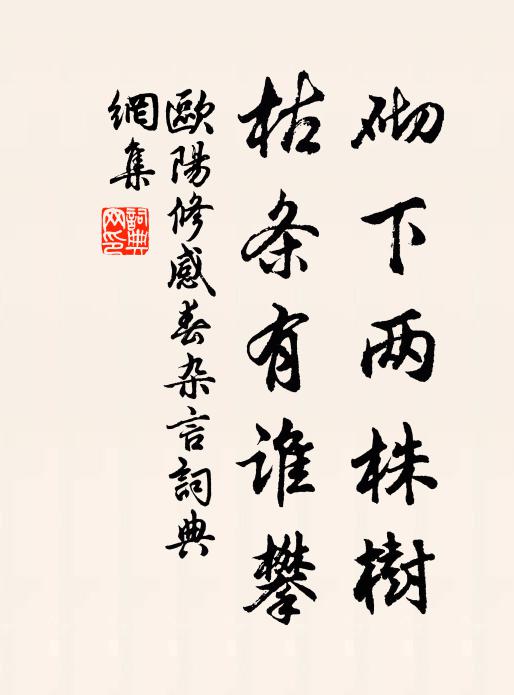 砌下两株樹
枯条有谁攀
歐陽修感春杂言詞典
網集
詞典
网印